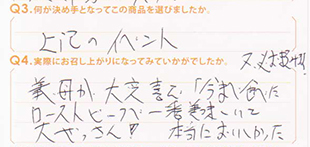 Q3.何が決め手となってこの商品を選びましたか。
上記のイベント
Q4.実際にお召し上がりになってみていかがでしたか。
義母が大変喜んで「今まで食べた
ローストビーフで一番美味しいって
大ぜっさん!! 本当においしかった